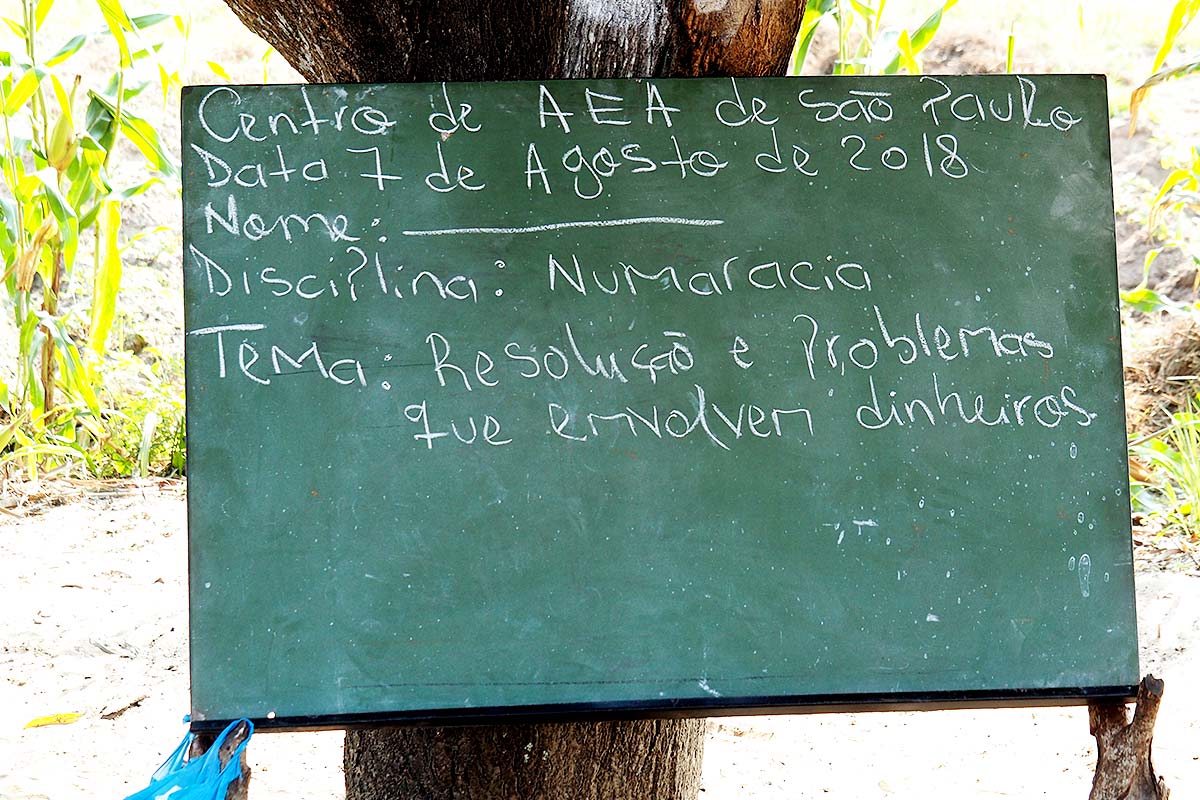 Centro de AEA de São Paulo
Data 7 de Agosto de 2018
Nome:
Disciplina: Numaracia
Tema: Resolução e Problemas
que envolvem dinheiros